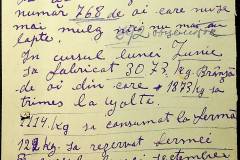 număr 768 de oi care nu se
mai mulg nici nu mai au
lapte.
În cursul lunei Iunie
sa fabricat 3073 /kg. Brânză
de oi din care 1873 kg sa
trimes la
1114 /kg sa consumat la fermă
122 kg sa rezervat fermei
septembrie